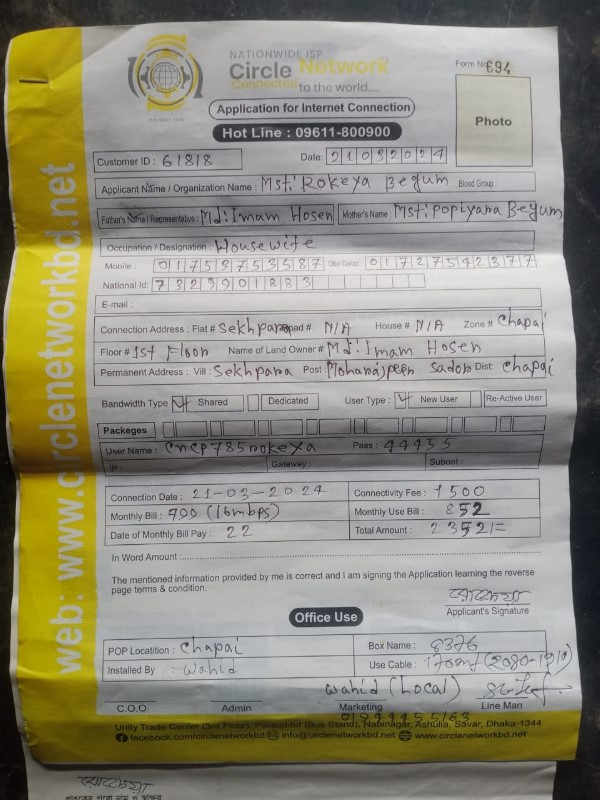 NATIONWIDE ISP
Circle Network
Connected to the world....
Form No: 694
Application for Internet Connection
Photo
Hot Line : 09611-800900
Customer ID : 61818 Date: 21032024
Applicant Name / Organization Name : Mst: Rokeya Begum Blood Group :
Father's Name / Representative : Md: Imam Hosen Mother's Name : Mst: Popiyara Begum
Occupation / Designation : Housewife
Mobile : 01753753587 Other Contact : 01727542377
National Id: 7329901883
E-mail :
Connection Address : Flat # Sekhpara Road # N/A House # N/A Zone # Chapai
Floor # 1st Floor Name of Land Owner # Md: Imam Hosen
Permanent Address : Vill : Sekhpara Post Sador Dist: Chapai
Bandwidth Type Shared Dedicated User Type : New User Re-Active User
Packeges
User Name : Cncp785rokeya Pass : 44455
IP : Gateway : Subnet :
Connection Date : 21-03-2024 Connectivity Fee : 1500
Monthly Bill : 700 (16mbps) Monthly Use Bill : 852
Date of Monthly Bill Pay : 22 Total Amount : 2352/=
In Word Amount :
The mentioned information provided by me is correct and I am signing the Application learning the reverse
page terms & condition.
রোকেয়া
Applicant's Signature
Office Use
POP Locatition : Chapai Box Name : 8376
Installed By : Wahid Use Cable : 170m (2080-1910)
Wahid (Local)
C.O.O Admin Marketing Line Man
Unity Trade Center (3rd Floor), (Bus Stand), Nabinagar, Ashulia, Savar, Dhaka-1344
facebook.com/circlenetworkbd info@circlenetworkbd.net www.circlenetworkbd.net
web: www.circlenetworkbd.net
রোকেয়া